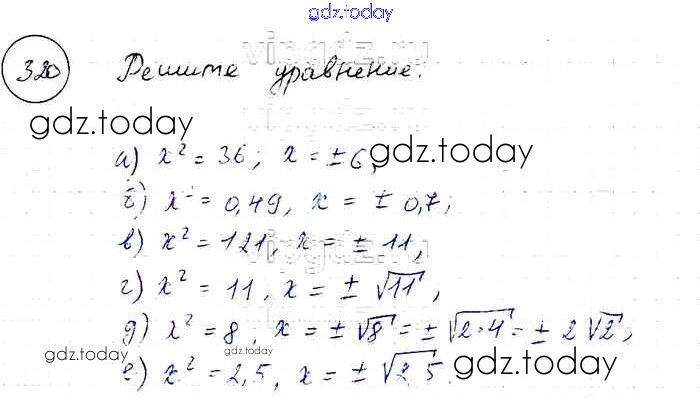 gdz.today
vipgdz.ru
320 Решите уравнение.
gdz.today
а) x² = 36; x = ±6,
gdz.today
б) x² = 0,49, x = ± 0,7;
в) x² = 121, x = ± 11,
vipgdz.ru
г) x² = 11, x = ± √11,
д) x² = 8, x = ± √8 = ± √2·4 = ± 2√2;
gdz.today
gdz.today
е) x² = 2,5, x = ± √2,5.
gdz.today